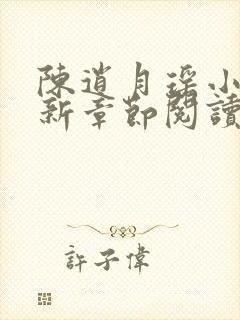 陳道月瑤小
新章節閱讀
許子偉